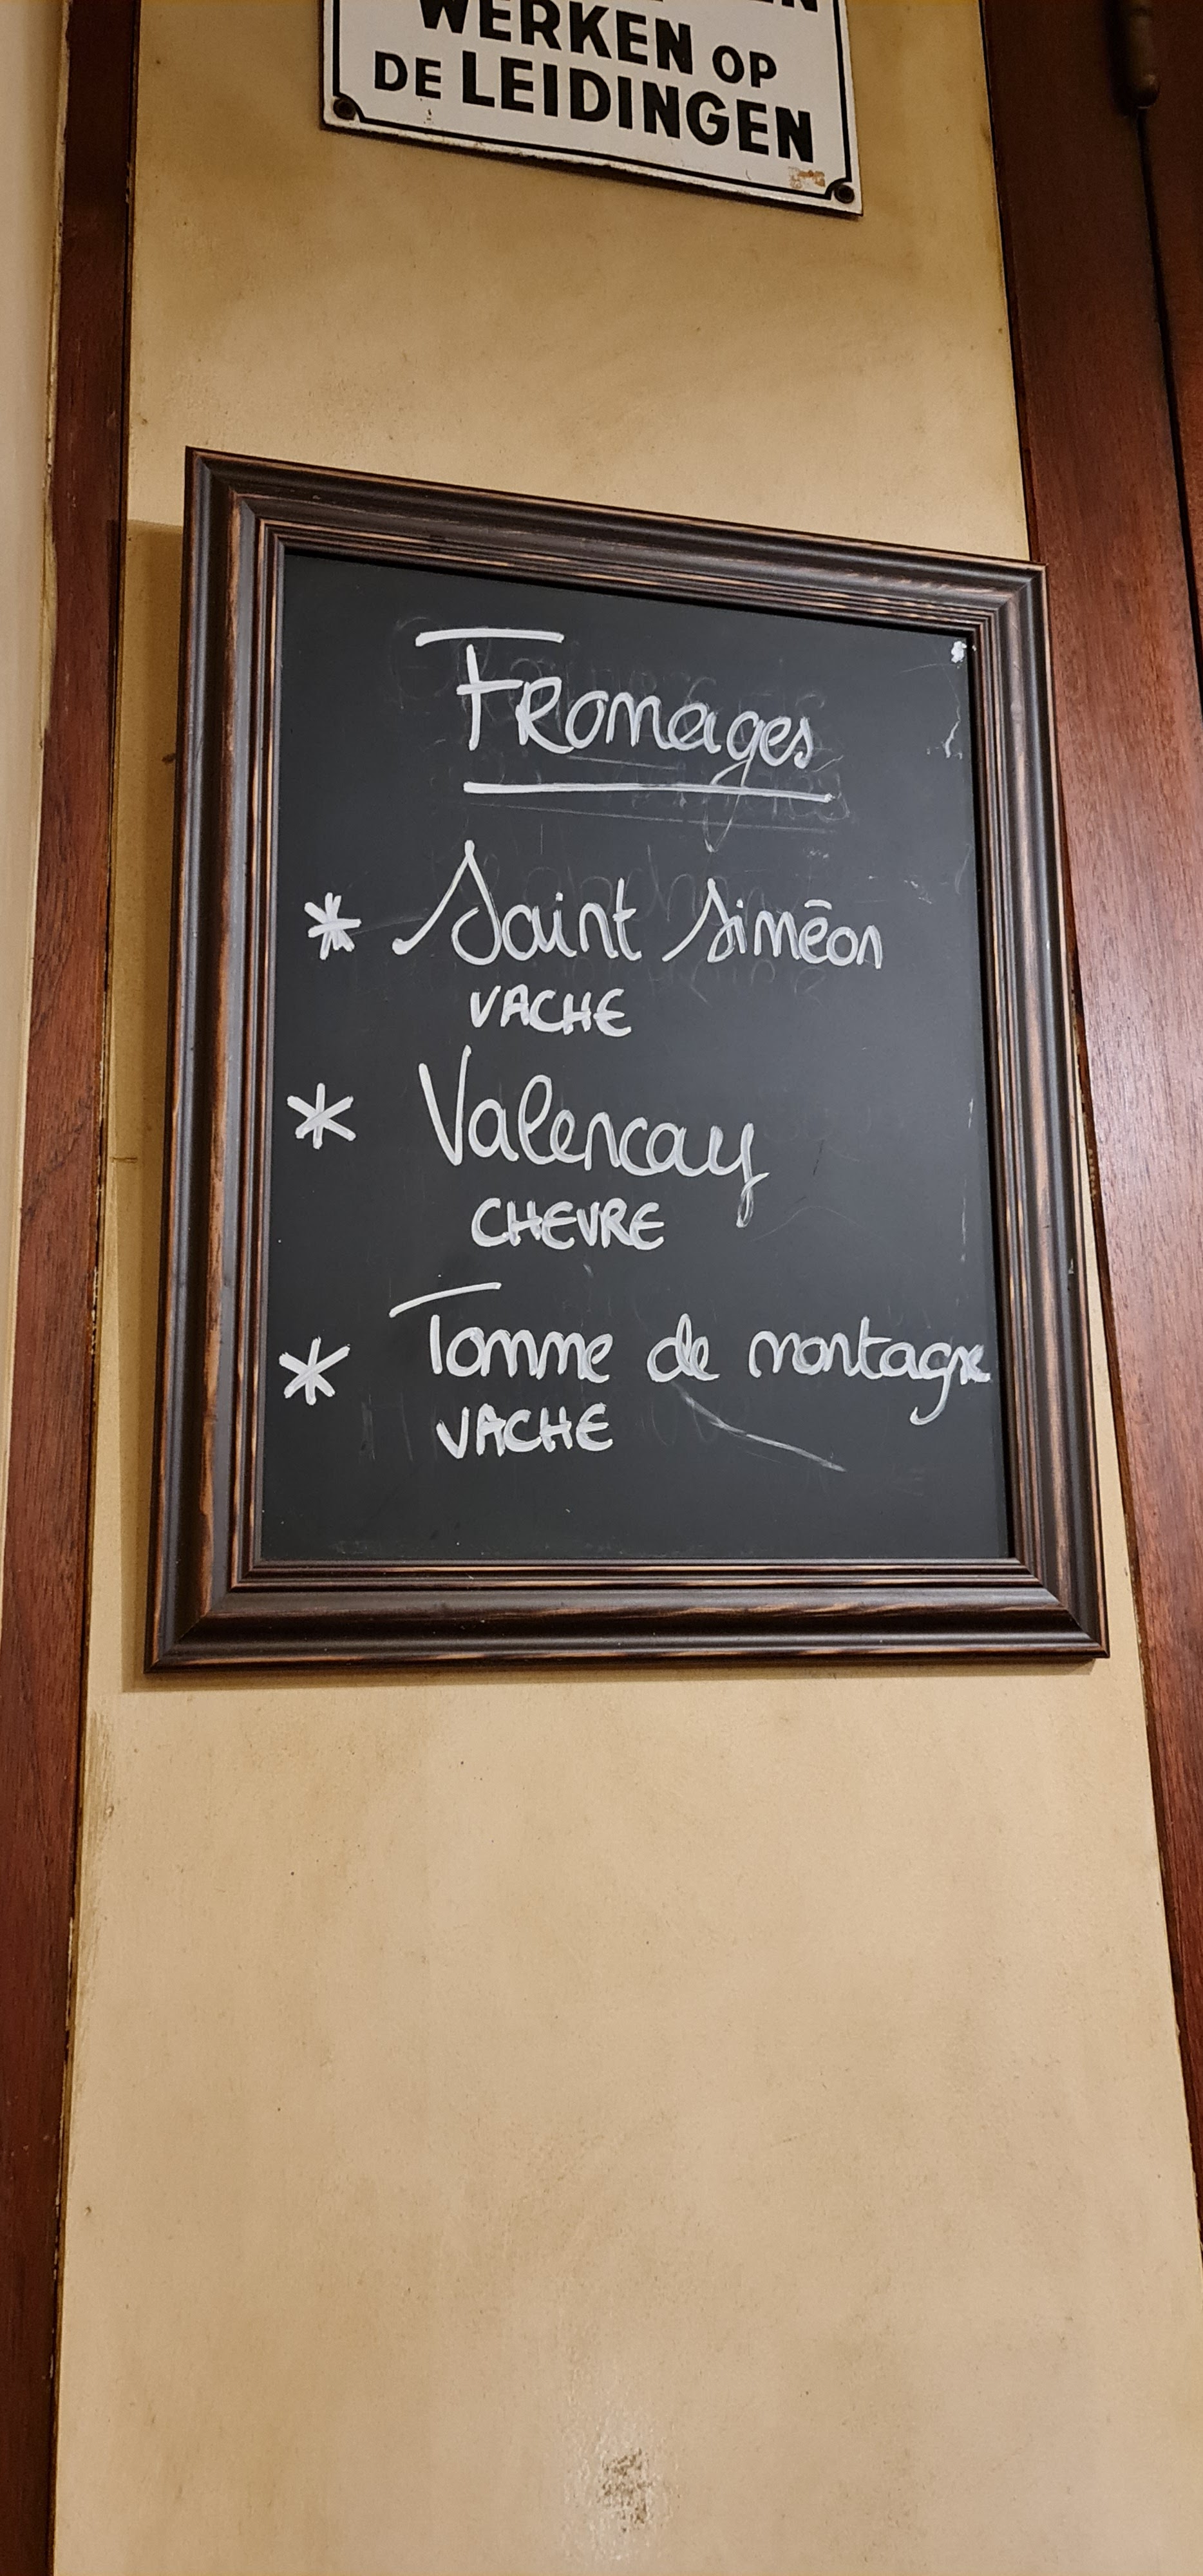 WERKEN OP
DE LEIDINGEN
Fromages
* Saint Siméon
VACHE
* Valencay
CHEVRE
* Tomme de montagne
VACHE